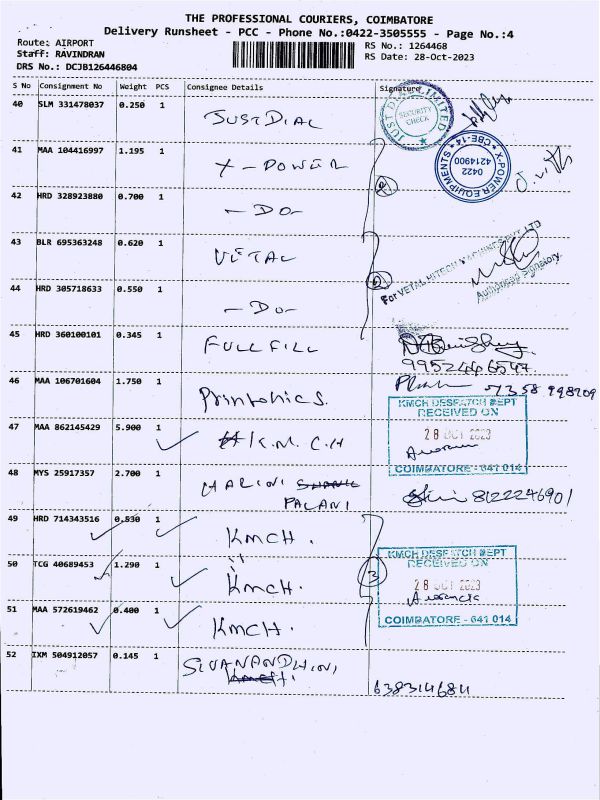 THE PROFESSIONAL COURIERS, COIMBATORE
Delivery Runsheet - PCC - Phone No.:0422-3505555 - Page No.:4
Route: AIRPORT
Staff: RAVINDRAN
DRS No.: DCJB126446804
RS No.: 1264468
RS Date: 28-Oct-2023
S No Consignment No Weight PCS Consignee Details Signature
40 SLM 331478037 0.250 1 JUST DIAL
JUST DIAL LIMITED SECURITY CHECK
41 MAA 104416997 1.195 1 X-POWER
X-POWER EQUIPMENTS CBE-14 0422 4214900
42 HRD 328923880 0.700 1 -DO-
2
43 BLR 695363248 0.620 1 VETAL
For VETAL HITECH MACHINES PVT LTD
Authorised Signatory
44 HRD 305718633 0.550 1 -DO-
2
45 HRD 360100101 0.345 1 FULL FILL
46 MAA 106701604 1.750 1 Printonics.
47 MAA 862145429 5.900 1 K.M.C.H
KMCH DESPATCH DEPT
RECEIVED ON
28 OCT 2023
COIMBATORE - 641 014
48 MYS 25917357 2.700 1 HARINI
PALANI
8122246901
49 HRD 714343516 0.530 1 KMCH.
50 TCG 40689453 1.290 1 KMCH.
3
51 MAA 572619462 0.400 1 KMCH.
KMCH DESPATCH DEPT
RECEIVED ON
28 OCT 2023
COIMBATORE - 641 014
52 IXM 504912057 0.145 1 SIVANANDHINI